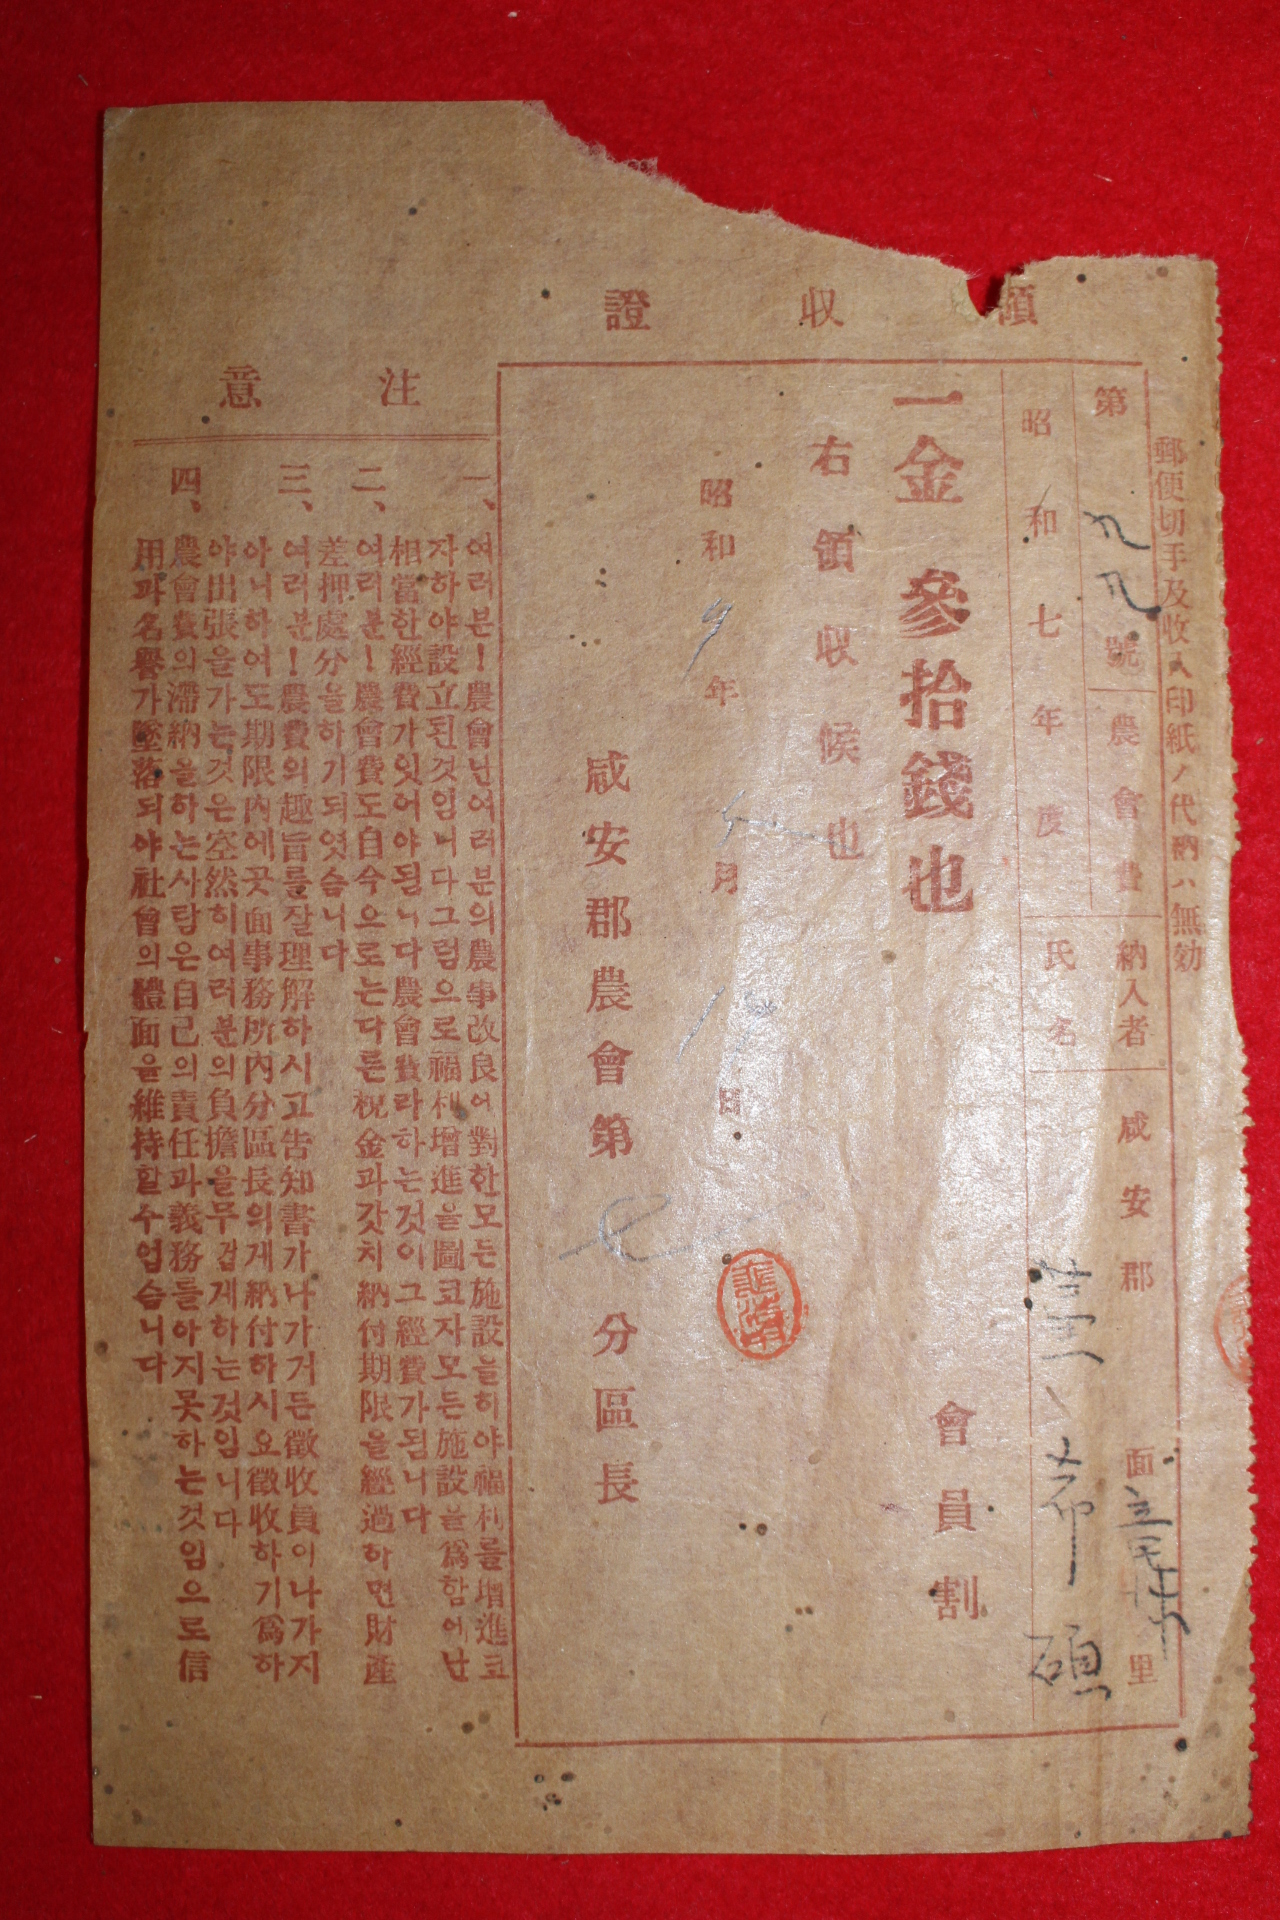 領收證
郵便切手及收入印紙ノ代納ハ無効
第 九九 號 農會費 納入者 咸安郡 面 里
昭和七年度 氏名 希碩
一金參拾錢也 會員割
右領收候也
昭和 9 年 月 日
咸安郡農會第 七 分區長
注意
一、여러분!農會난여러분의農事改良에對한모든施設을히야福利를增進코
자하야設立된것임니다그럼으로福利增進을圖코자모든施設을爲함에난
相當한經費가잇어야됨니다農會費라하는것이그經費가됨니다
二、여러분!農會費도自今으로는다른稅金과갓치納付期限을經過하면財產
差押處分을하기되엿슴니다
三、여러분!農會費의趣旨를잘理解하시고告知書가나가거든徵收員이나가지
아니하여도期限內에곳面事務所內分區長의게納付하시요徵收하기爲하
야出張을가는것은空然히여러분의負擔을무겁게하는것임니다
四、農會費의滯納을하는사람은自己의責任과義務를아지못하는것임으로信
用과名譽가墜落되야社會의體面을維持할수업슴니다